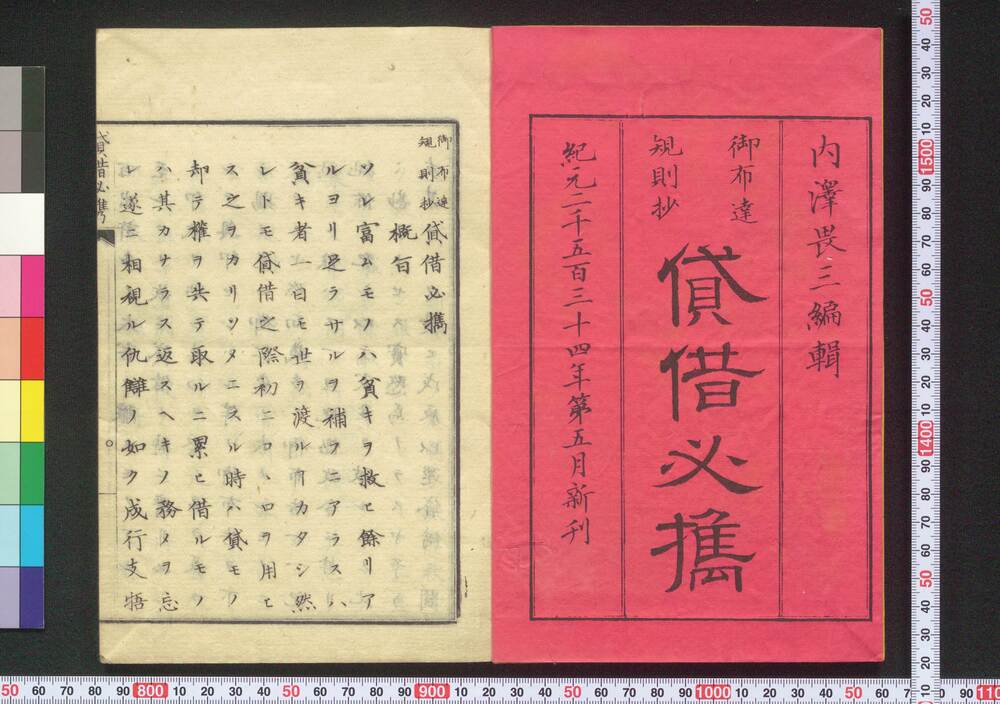 内澤畏三編輯
御布達
規則抄
貸借必携
紀元二千五百三十四年第五月新刋
御布達
規則抄
貸借必攜
概旨
ソレ富ムモノハ貧キヲ救ヒ餘リア
ルヨリ足ラサルヲ補フニアラスハ
貧キ者一日モ世ヲ渡ル可カタシ然
レトモ貸借之際初ニコヽロヲ用ヒ
ス之ヲカリソメニスル時ハ貸モノ
却テ權ヲ失テ取ルニ累ヒ借ルモノ
ハ其カナラス返スヘキノ務メヲ忘
レ遂ニ相視ル仇讎ノ如ク成行支牾
貸借必携